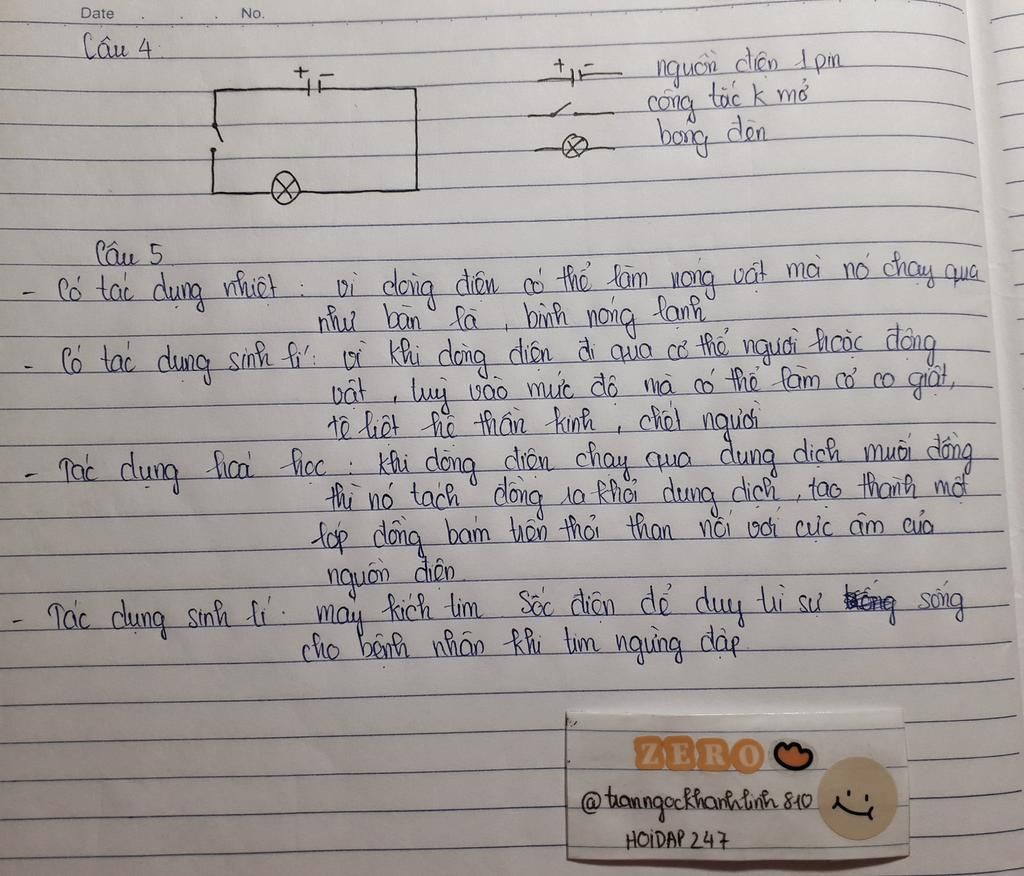 Date . . No.
Câu 4
+ -
+ - nguồn điện 1 pin
công tắc k mở
bóng đèn
Câu 5
- Có tác dụng nhiệt : vì dòng điện có thể làm nóng vật mà nó chạy qua
như bàn là, bình nóng lạnh
- Có tác dụng sinh lí : vì khi dòng điện đi qua cơ thể người hoặc động
vật, tuỳ vào mức độ mà có thể làm cơ co giật,
tê liệt hệ thần kinh, chết người
- Tác dụng hoá học : khi dòng điện chạy qua dung dịch muối đồng
thì nó tách đồng ra khỏi dung dịch, tạo thành một
lớp đồng bám trên thỏi than nối với cực âm của
nguồn điện
- Tác dụng sinh lí : máy kích tim Sốc điện để duy trì sự sống
cho bệnh nhân khi tim ngừng đập
ZERO
@tranngockhanhlinh810
HOIDAP247